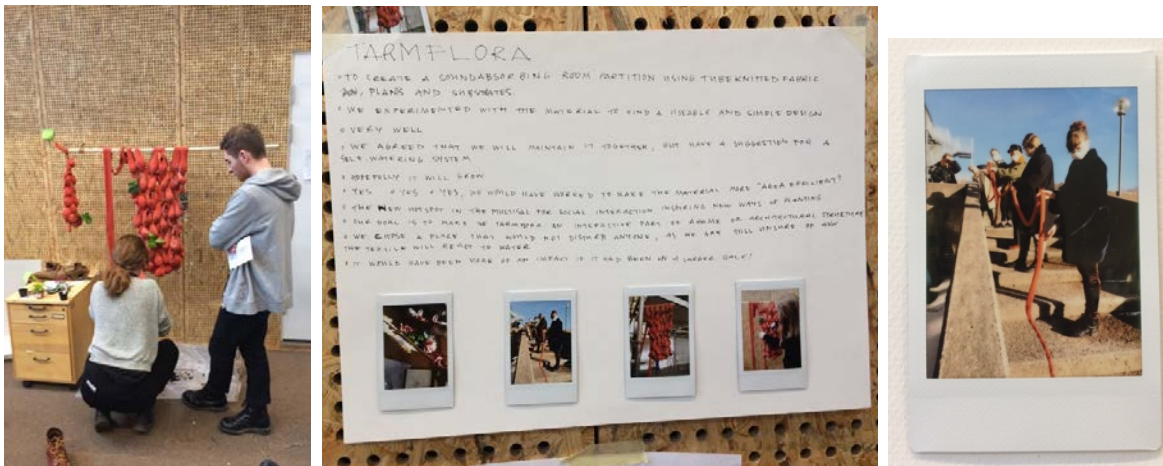 TARMFLORA
• TO CREATE A SOUNDABSORBING ROOM PARTITION USING TUBEKNITTED FABRIC
PLANTS AND SUBSTRATES.
• WE EXPERIMENTED WITH THE MATERIAL TO FIND A USEABLE AND SIMPLE DESIGN
• VERY WELL
• WE AGREED THAT WE WILL MAINTAIN IT TOGETHER, BUT HAVE A SUGGESTION FOR A
SELF-WATERING SYSTEM
• HOPEFULLY IT WILL GROW
• YES • YES • YES, WOULD HAVE WORKED TO MAKE THE MATERIAL MORE "AREA EFFICIENT"
• THE NEW HOTSPOT IN THE FOR SOCIAL INTERACTION INSPIRING NEW WAYS OF PLANTING
• OUR GOAL IS TO MAKE TARMFLORA AN INTERACTIVE PART OF A HOME OR ARCHITECTURAL STRUCTURE
• WE CHOSE A PLACE THAT WOULD NOT DISTURB ANYONE, AS WE ARE STILL UNSURE OF HOW
THE TEXTILE WILL REACT TO WATER
• IT WOULD HAVE BEEN MORE OF AN IMPACT IF IT HAD BEEN ON A LARGER SCALE!